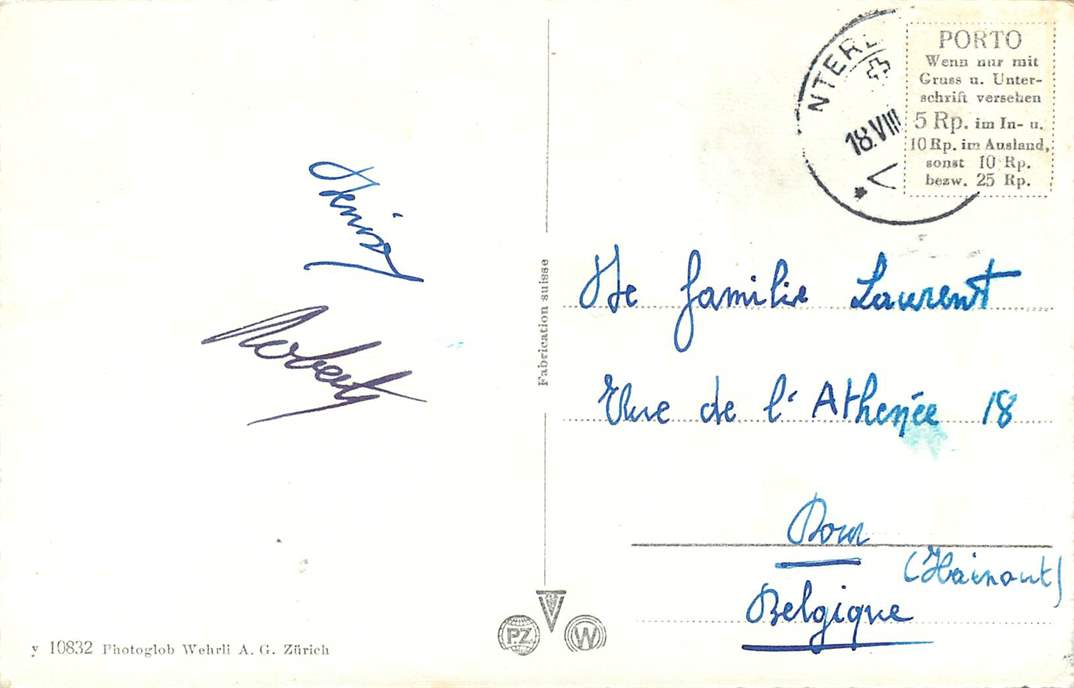 Denise
Robert
Fabrication suisse
y 10832 Photoglob Wehrli A. G. Zürich
PZ
W
NTERL
18.VIII
V
PORTO
Wenn nur mit
Gruss u. Unter-
schrift versehen
5 Rp. im In- u.
10 Rp. im Ausland,
sonst 10 Rp.
bezw. 25 Rp.
famille Laurent
Rue de l'Athenée 18
Dour
(Hainaut)
Belgique